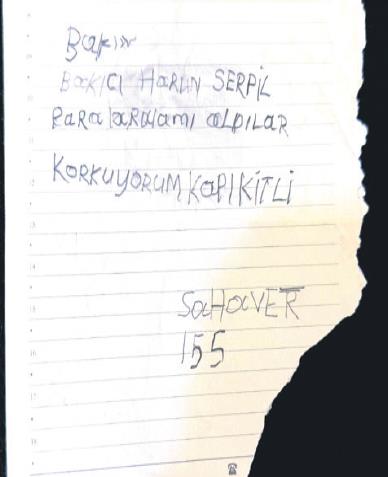 BAKICI HARUN SERPİL
PARALARIMI ALDILAR
KORKUYORUM KAPI KİTLİ
SAHAVER
155